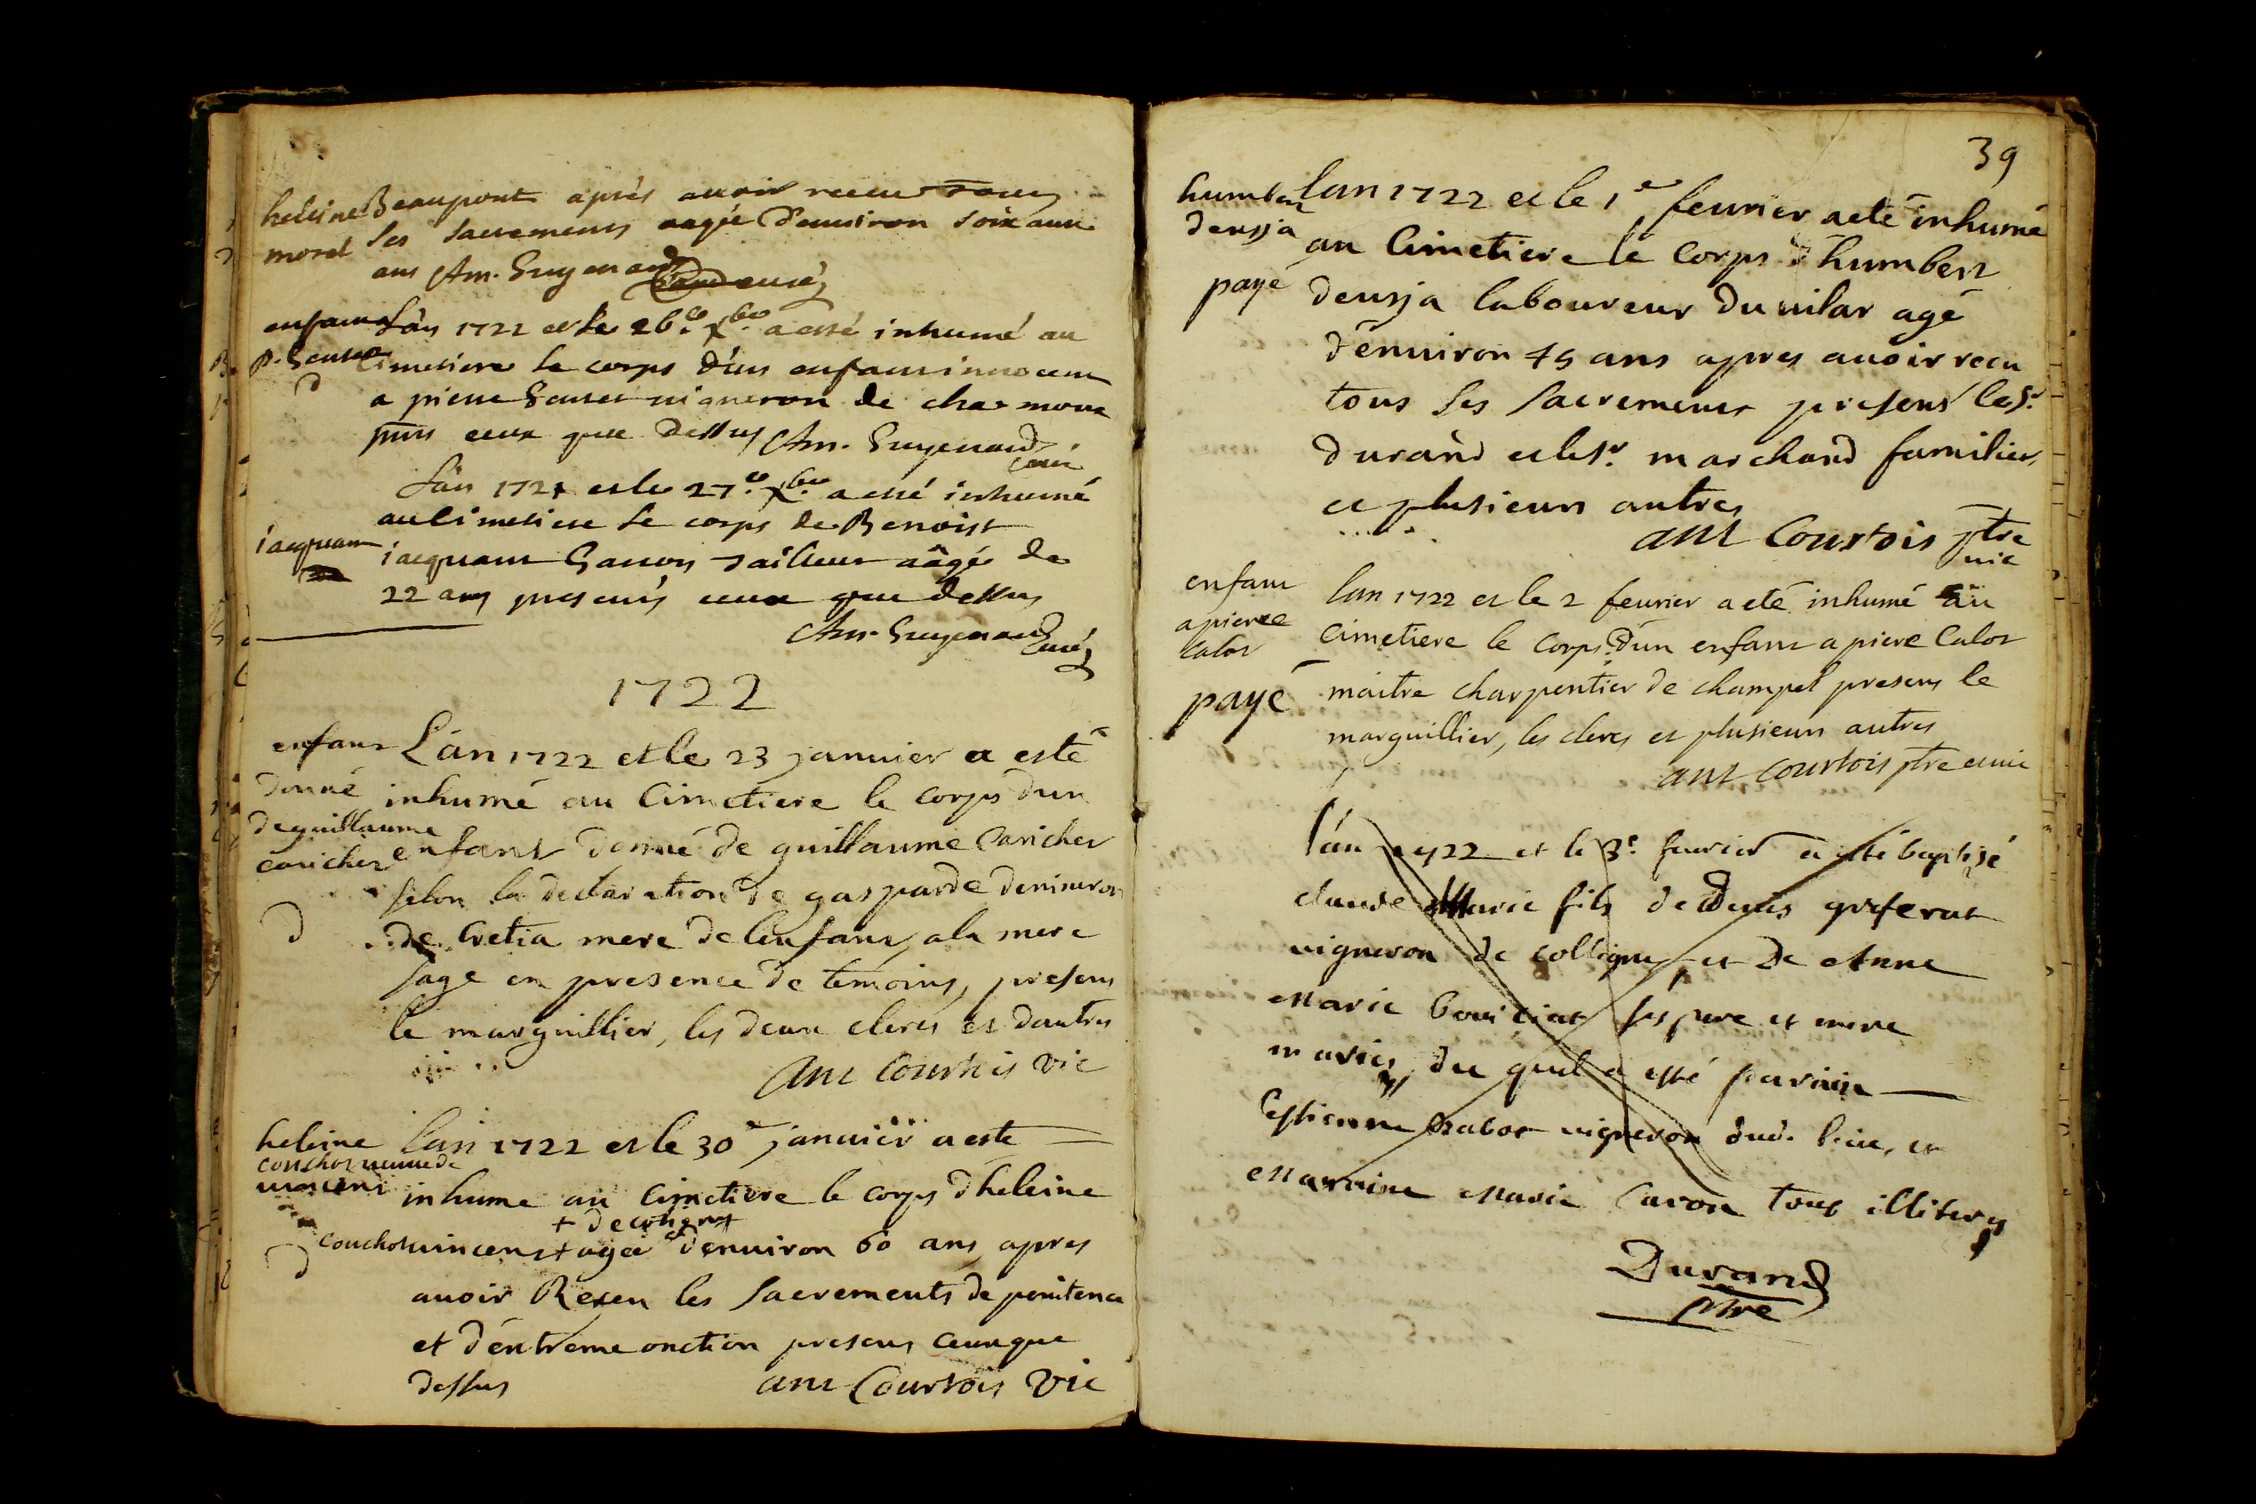 heleine
morel
Beaupont après avoir receu tous
les sacremens aagée d'environ soixante
ans Am. Guyenard curé
enfant
p. Genter
d
Lân 1721 et le 26.e Xbre a esté inhumé au
Cimetiere le corps d'un enfant innocent
a pierre vigneron de charmoux
pnts ceux que dessus Am. Guyenard
curé
Lân 1721 et le 27.e Xbre a esté inhumé
au Cimetiere le corps de Benoist
jacquant
jacquant Garson tailleur aâgé de
22 ans presents ceux que dessus
Am. Guyenard
curé
1722
enfant
donné
de guillaume
caricher
d
L'an 1722 et le 23 janvier a esté
inhumé au Cimetiere le corps d'un
enfant donné de guillaume Caricher
selon la declaration de gasparde
de Cretia mere de lenfant, a la mere
sage en presence de temoins, presens
le marguillier, les deux clercs et dautres
ant Courtois vic
heleine
couchot veuve de
vincent
d
l'an 1722 et le 30e janvier a este
inhume au Cimetiere le corps d'heleine
+ de coligny +
couchot vincent + agée d'environ 60 ans apres
avoir Receu les sacrements de penitence
et d'éxtreme onction presens ceux que
dessus ant Courtois Vic
39
humbert
deusja
payé
lan 1722 et le 1e feurier a eté inhumé
au Cimetiere le Corps d'humbert
deusja laboureur du vilar agé
d'énuiron 45 ans apres auoir recu
tous les sacremens presens le Sr.
durand et le Sr. marchand familier
et plusieurs autres
ant Courtois ptre
vic
enfant
a pierre
Calot
payé
lan 1722 et le 2 feurier a eté inhumé au
Cimetiere le Corps d'un enfant a piere Calot
maitre charpentier de champel presens le
marguillier, les clercs et plusieurs autres
ant Courtois ptre et vic
l'án 1722 et le 3e. feurier a esté baptisé
claude Marie fils de Denis
vigneron de colligny et de Anne
Marie ses pere et mere
mariés, du quel a esté parain
Estienne vigneron dud. lieu, et
Marraine Marie Caron tous illiterés
Durand
ptre